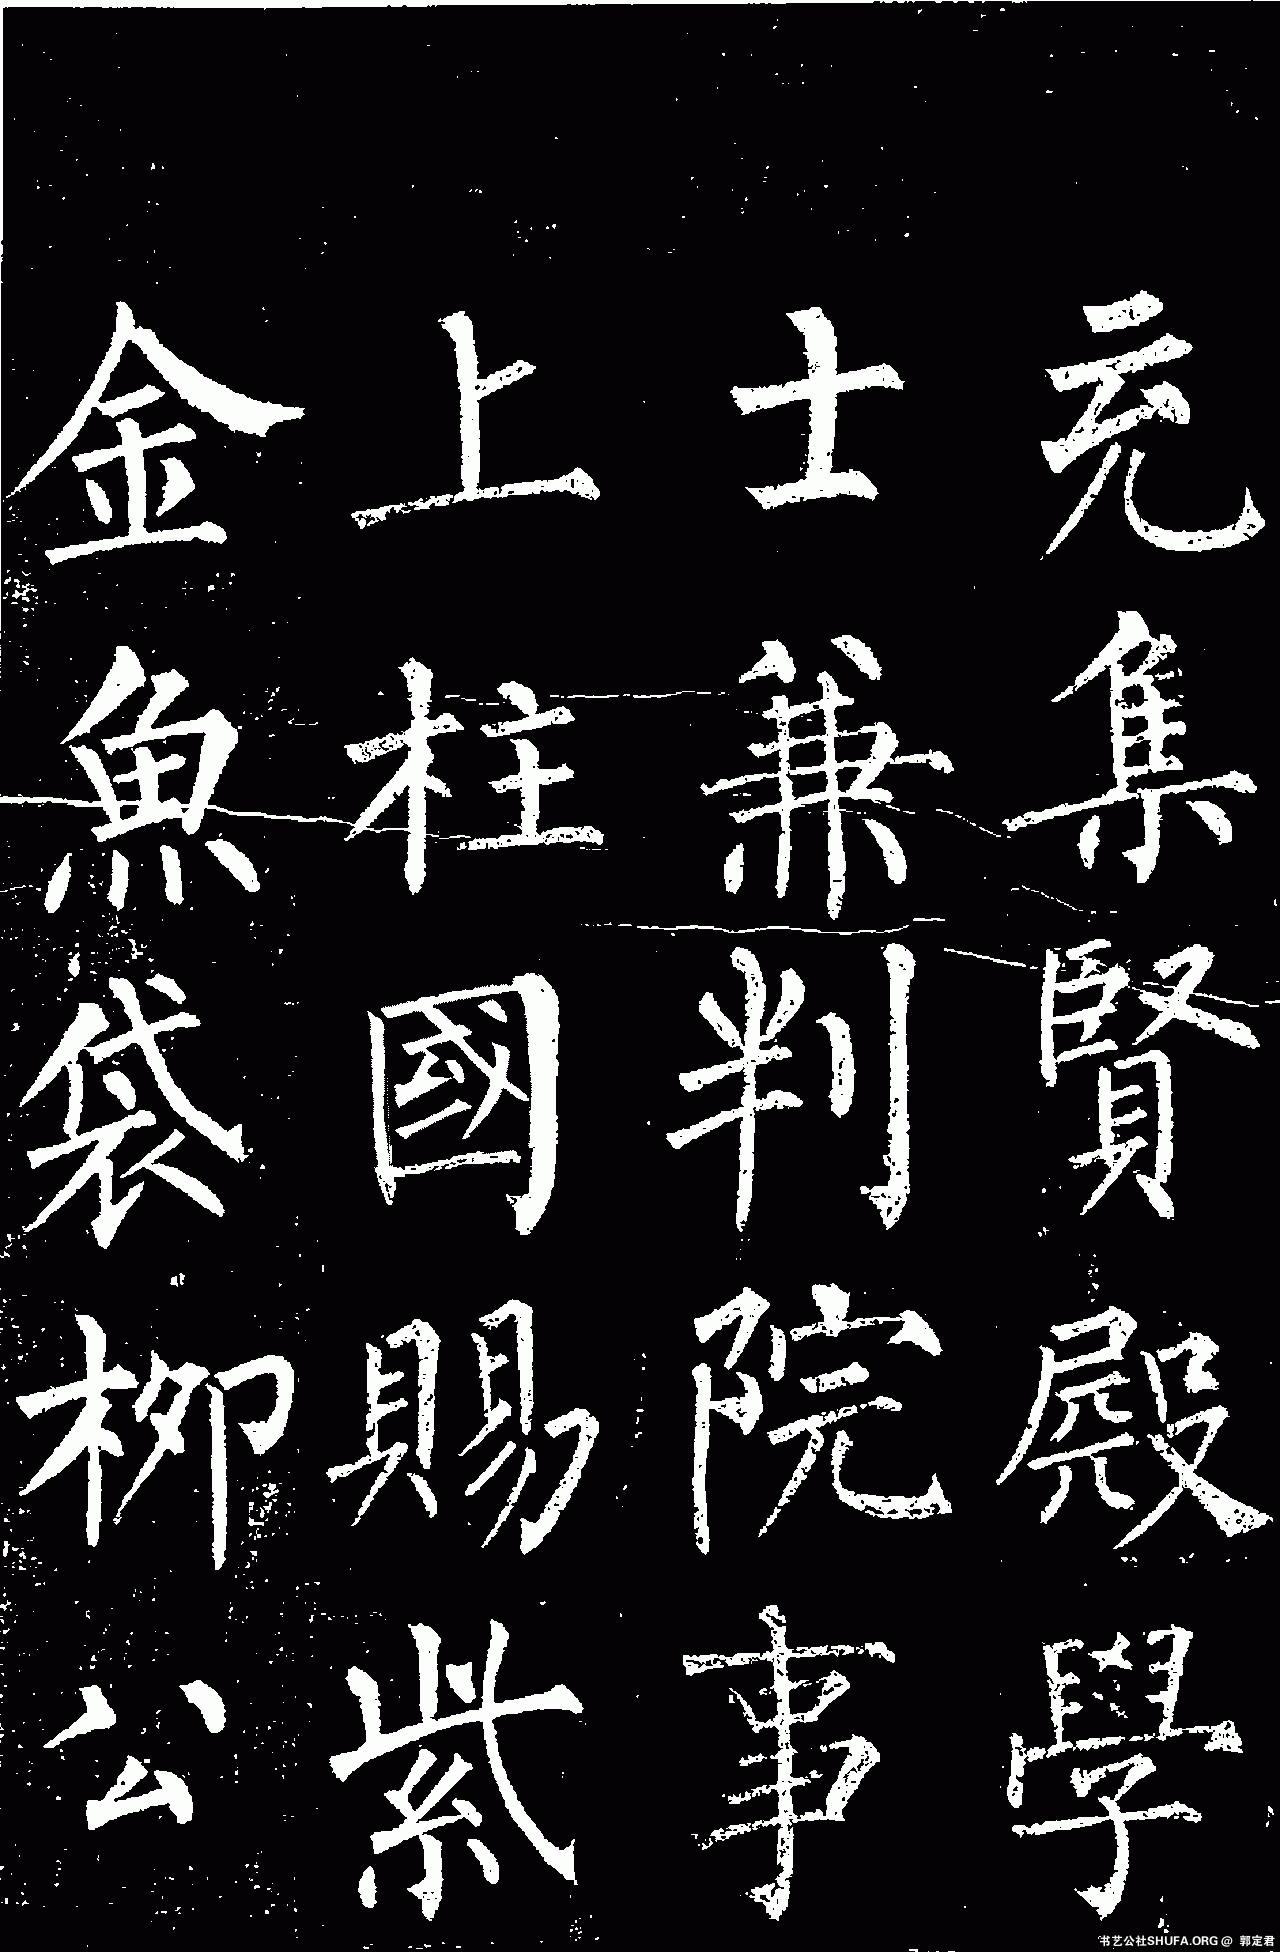 充集賢殿學
士兼判院事
上柱國賜紫
金魚袋柳公
书艺公社SHUFA.ORG @ 郭定君